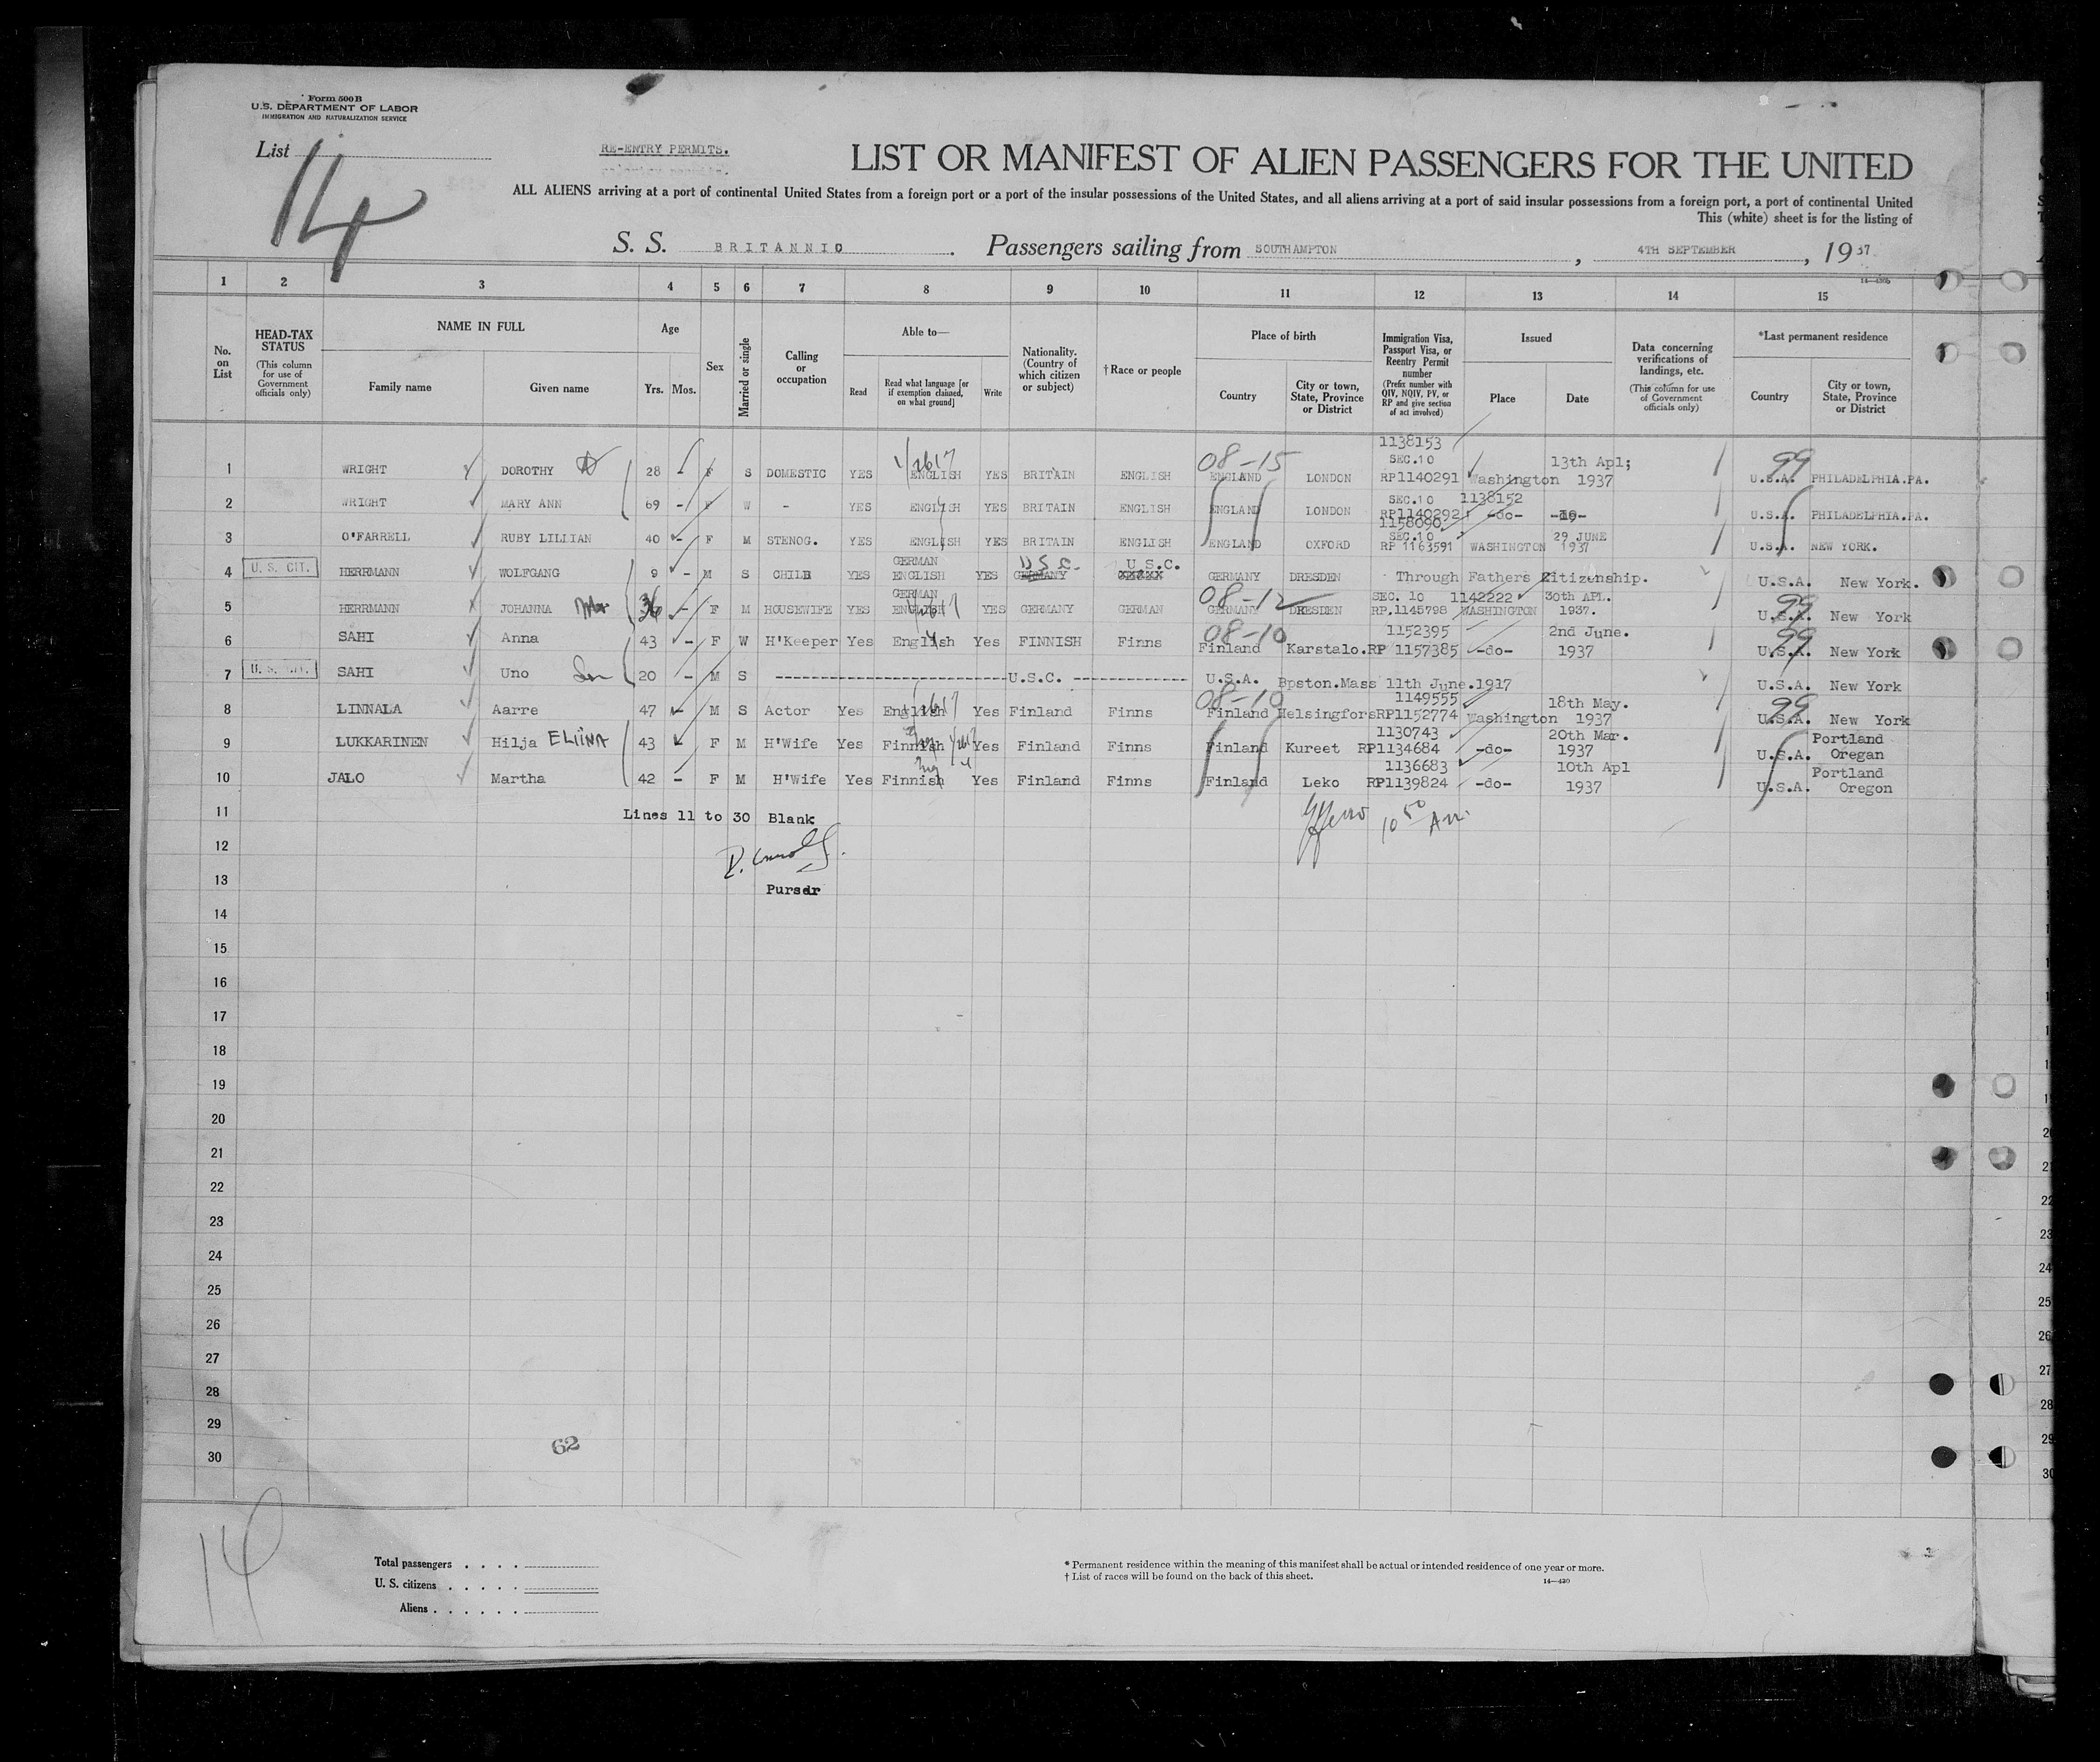 Form 500 B
U.S. DEPARTMENT OF LABOR
IMMIGRATION AND NATURALIZATION SERVICE
List 14
RE-ENTRY PERMITS.
LIST OR MANIFEST OF ALIEN PASSENGERS FOR THE UNITED
ALL ALIENS arriving at a port of continental United States from a foreign port or a port of the insular possessions of the United States, and all aliens arriving at a port of said insular possessions from a foreign port, a port of continental United
This (white) sheet is for the listing of
S. S. BRITANNIC. Passengers sailing from SOUTHAMPTON, 4TH SEPTEMBER, 1937
14—430b
1 2 3 4 5 6 7 8 9 10 11 12 13 14 15
No. on List
HEAD-TAX STATUS (This column for use of Government officials only)
NAME IN FULL
Family name
Given name
Age
Yrs. Mos.
Sex
Married or single
Calling or occupation
Able to—
Read
Read what language [or if exemption claimed, on what ground]
Write
Nationality. (Country of which citizen or subject)
†Race or people
Place of birth
Country
City or town, State, Province or District
Immigration Visa, Passport Visa, or Reentry Permit number (Prefix number with QIV, NQIV, PV, or RP and give section of act involved)
Issued
Place
Date
Data concerning verifications of landings, etc. (This column for use of Government officials only)
*Last permanent residence
Country
City or town, State, Province or District
1138153
08-15 SEC.10 13th Apl; 99
1 WRIGHT DOROTHY 28 - F S DOMESTIC YES ENGLISH YES BRITAIN ENGLISH ENGLAND LONDON RP1140291 Washington 1937 U.S.A. PHILADELPHIA.PA.
SEC.10 1138152
2 WRIGHT MARY ANN 69 - F W - YES ENGLISH YES BRITAIN ENGLISH ENGLAND LONDON RP1140292 -do- -do- U.S.A. PHILADELPHIA.PA.
1158090
SEC.10 29 JUNE
3 O'FARRELL RUBY LILLIAN 40 - F M STENOG. YES ENGLISH YES BRITAIN ENGLISH ENGLAND OXFORD RP 1163591 WASHINGTON 1937 U.S.A. NEW YORK.
GERMAN U S C. U.S.C.
4 U. S. CIT. HERRMANN WOLFGANG 9 - M S CHILD YES ENGLISH YES GERMANY XXXXXX GERMANY DRESDEN Through Fathers Citizenship. U.S.A. New York.
GERMAN 08-12 SEC. 10 1142222 30th APL. 99
5 HERRMANN JOHANNA 36 - F M HOUSEWIFE YES ENGLISH YES GERMANY GERMAN GERMANY DRESDEN RP.1145798 WASHINGTON 1937. U.S.A. New York
08-10 1152395 2nd June. 99
6 SAHI Anna 43 - F W H'Keeper Yes English Yes FINNISH Finns Finland Karstalo. RP 1157385 -do- 1937 U.S.A. New York
7 U. S. CIT. SAHI Uno Son 20 - M S ---------- U.S.C. ---------- U.S.A. Bpston.Mass 11th June.1917 U.S.A. New York
08-10 1149555 18th May. 99
8 LINNALA Aarre 47 - M S Actor Yes English Yes Finland Finns Finland Helsingfors RP1152774 Washington 1937 U.S.A. New York
1130743 20th Mar. Portland
9 LUKKARINEN Hilja ELIINA 43 F M H'Wife Yes Finnish Yes Finland Finns Finland Kureet RP1134684 -do- 1937 U.S.A. Oregan
1136683 10th Apl Portland
10 JALO Martha 42 - F M H'Wife Yes Finnish Yes Finland Finns Finland Leko RP1139824 -do- 1937 U.S.A. Oregon
11 Lines 11 to 30 Blank
12
13 Purser
14
15
16
17
18
19
20
21
22
23
24
25
26
27
28
29
30
62
14
Total passengers . . . .
U. S. citizens . . . . .
Aliens . . . . . .
* Permanent residence within the meaning of this manifest shall be actual or intended residence of one year or more.
† List of races will be found on the back of this sheet.
14—430